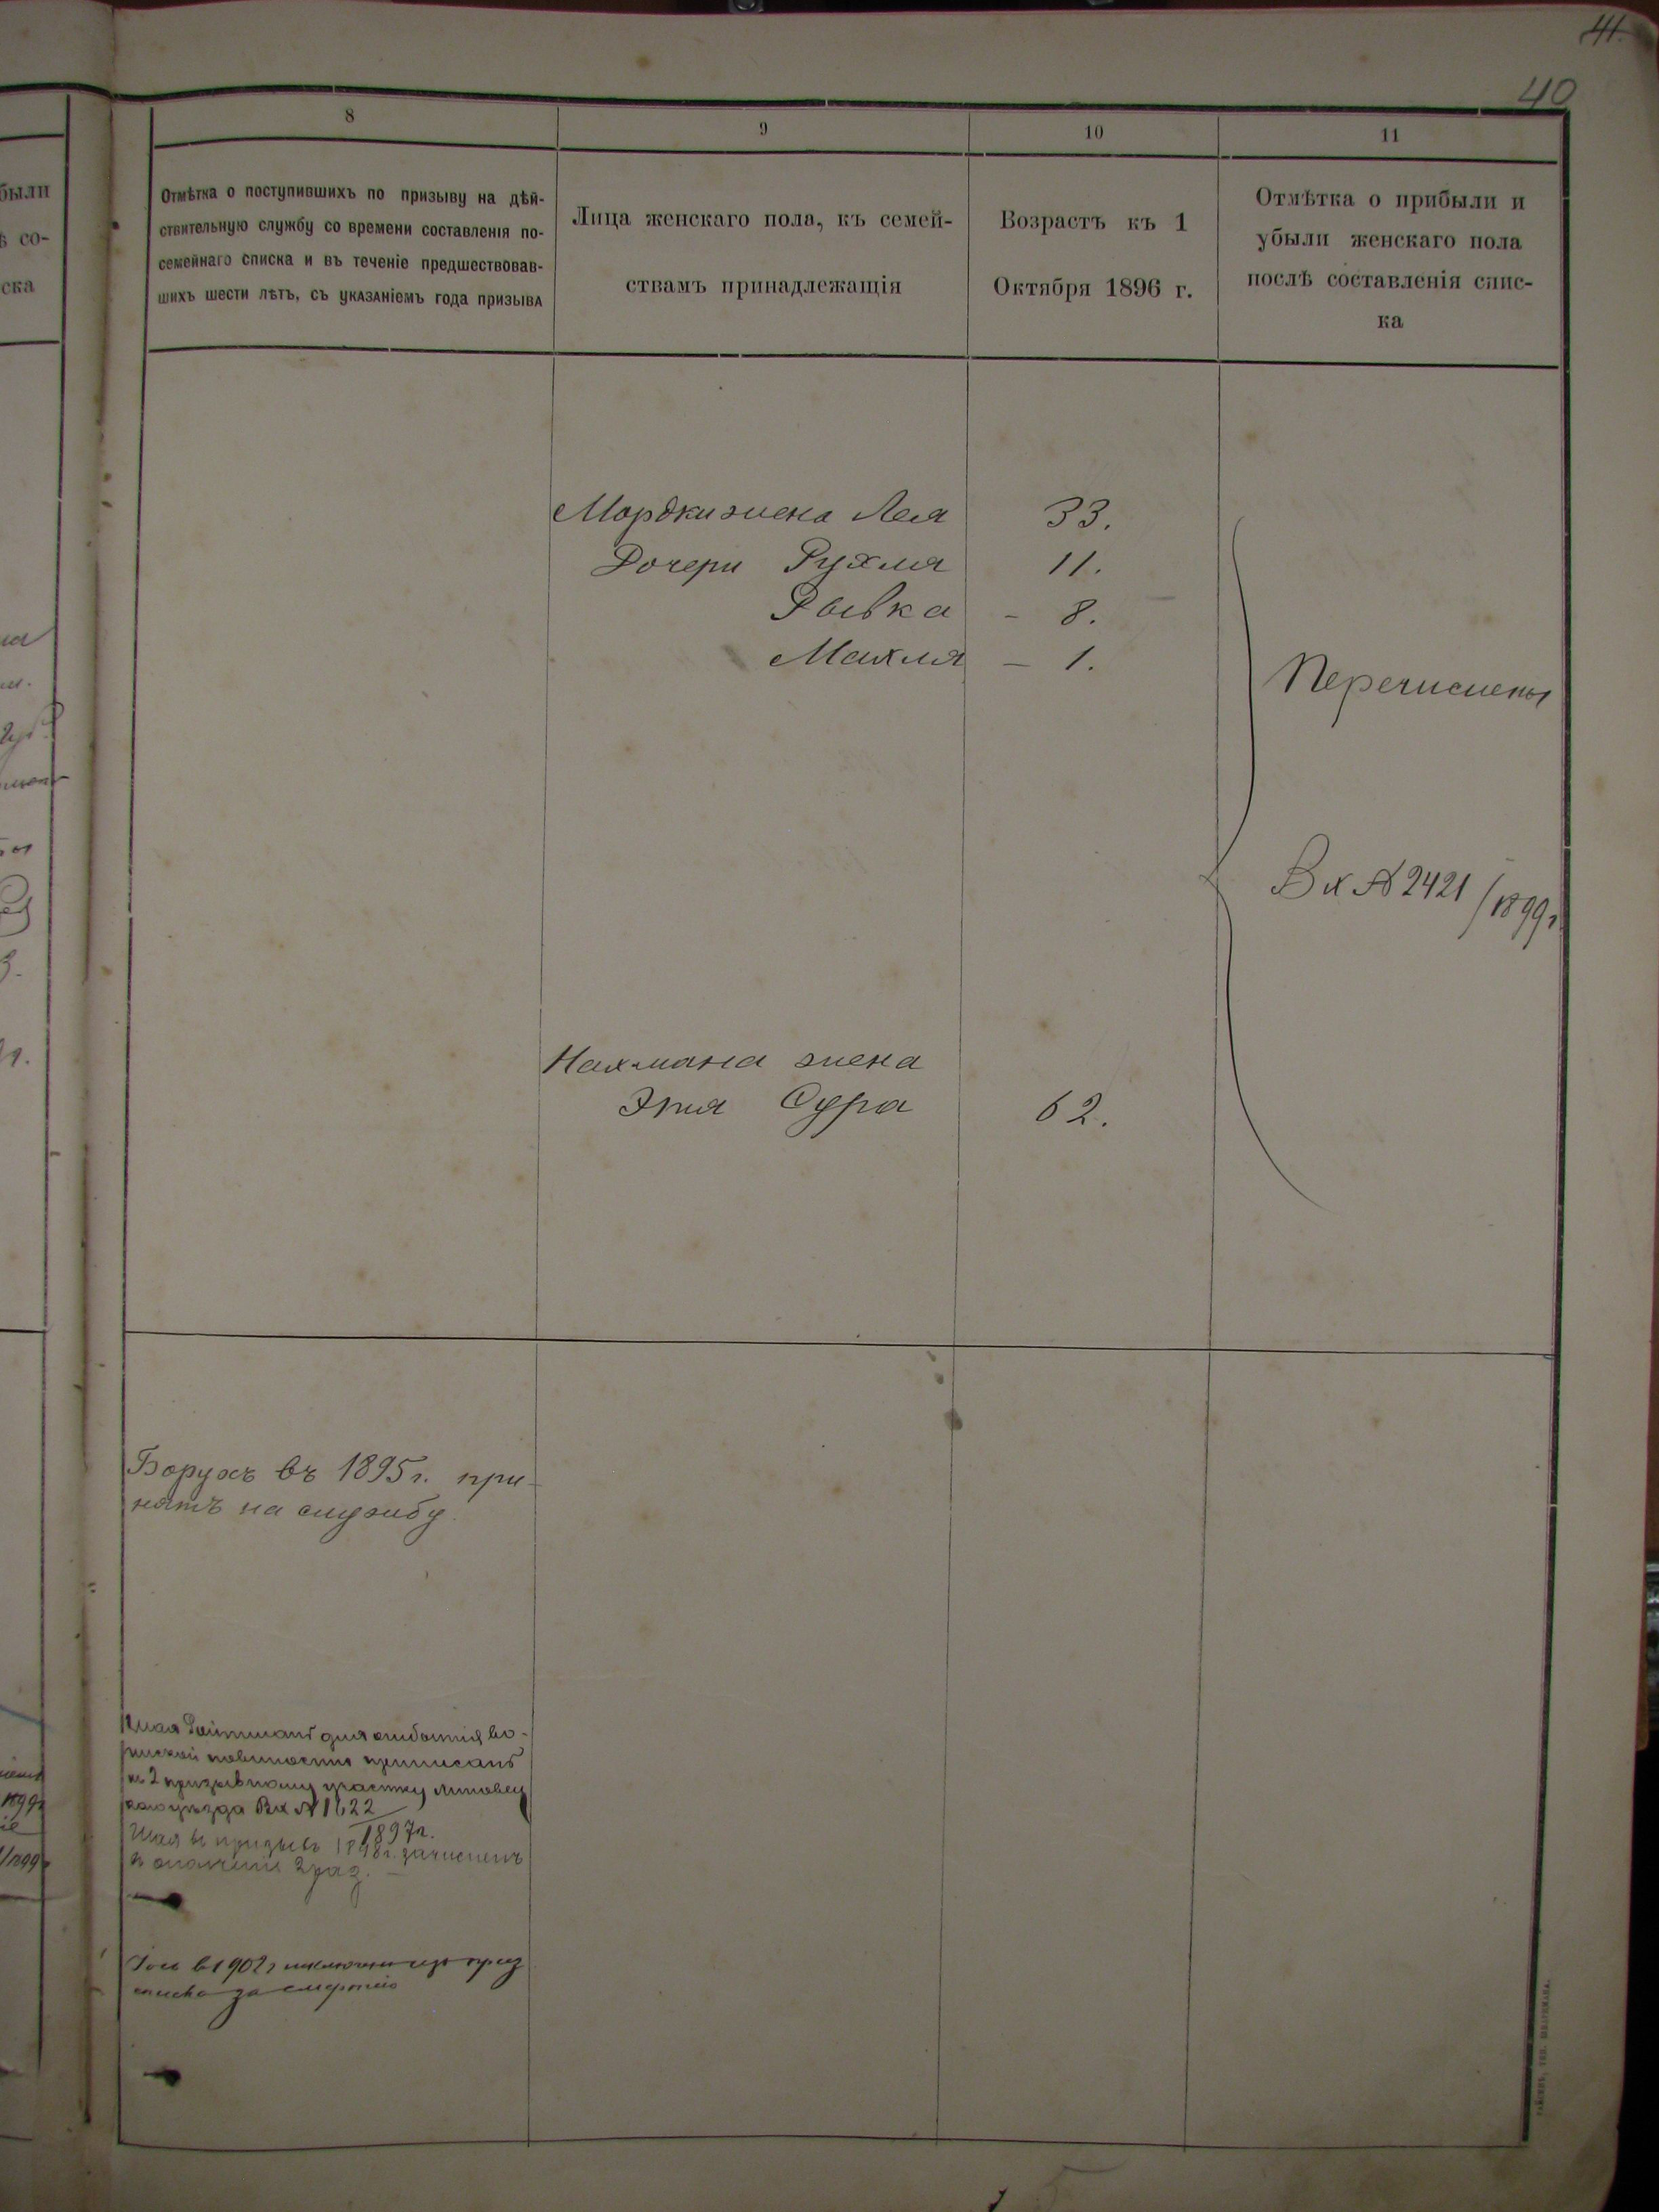 41.
40
8
9
10
11
Отмѣтка о поступившихъ по призыву на дѣй-
ствительную службу со времени составленія по-
семейнаго списка и въ теченіе предшествовав-
шихъ шести лѣтъ, съ указаніемъ года призыва
Лица женскаго пола, къ семей-
ствамъ принадлежащія
Возрастъ къ 1
Октября 1896 г.
Отмѣтка о прибыли и
убыли женскаго пола
послѣ составленія спис-
ка
были
со-
ска
Мордки жена Лея 33.
Дочери Рухля 11.
Рывка - 8.
Махля - 1.
Перечислены
Вх № 2421/1899г.
Нахмана жена
Этя Сура 62.
Борухъ въ 1895 г. при-
нятъ на службу.
для отбытія во-
инской повинности приписанъ
къ 2 призывному участку Липовец
каго уѣзда Вх № 1622
1897г.
Шая въ призывъ 1898 г. зачисленъ
въ ополченіе 2 раз. -
в 1902 г исключен из приз
списка за смертію
1899
1899